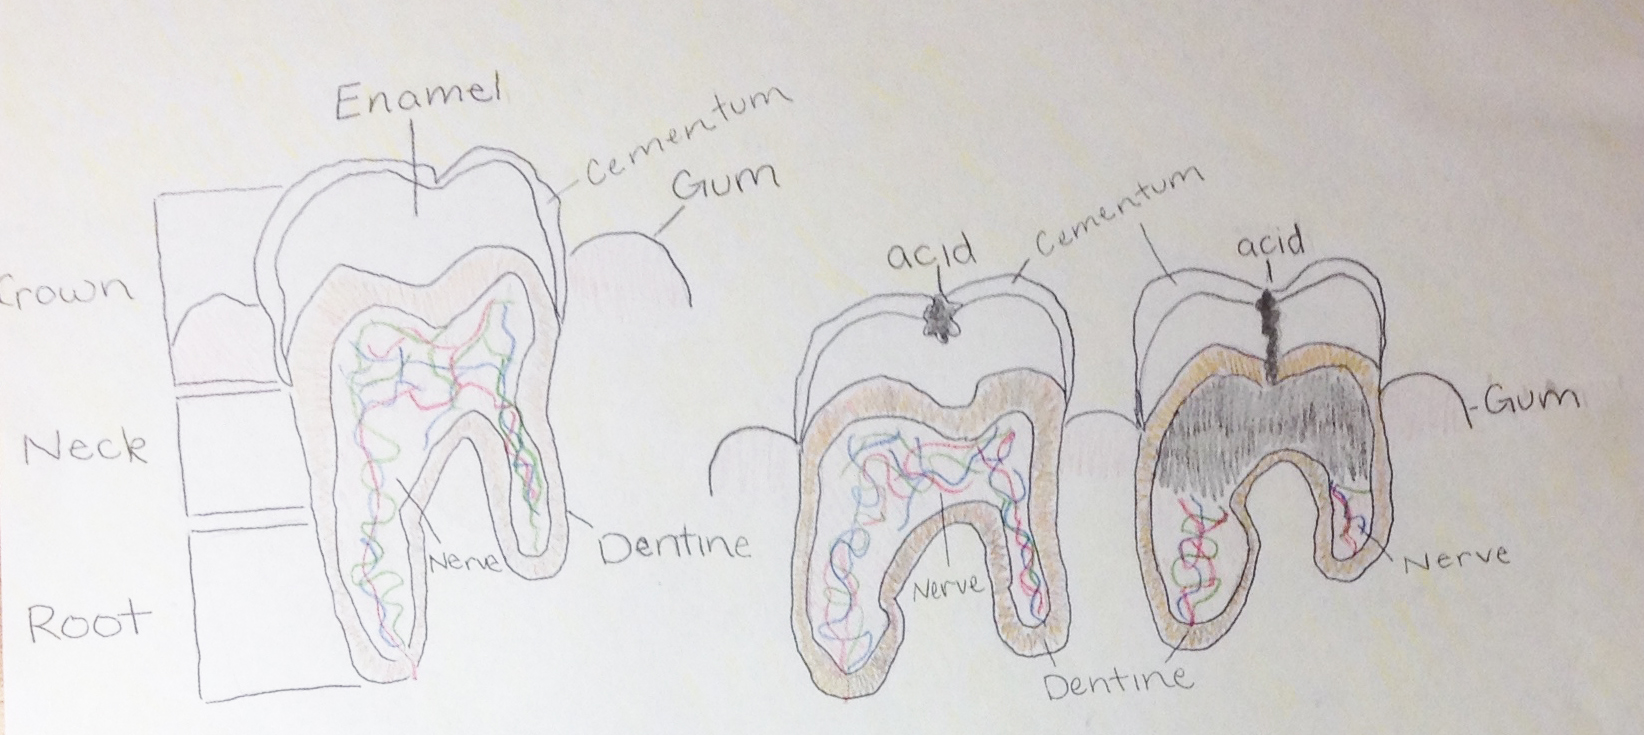 Enamel
Cementum
Gum
Crown
Neck
Root
Nerve
Dentine
acid
Cementum
acid
Gum
Nerve
Nerve
Dentine